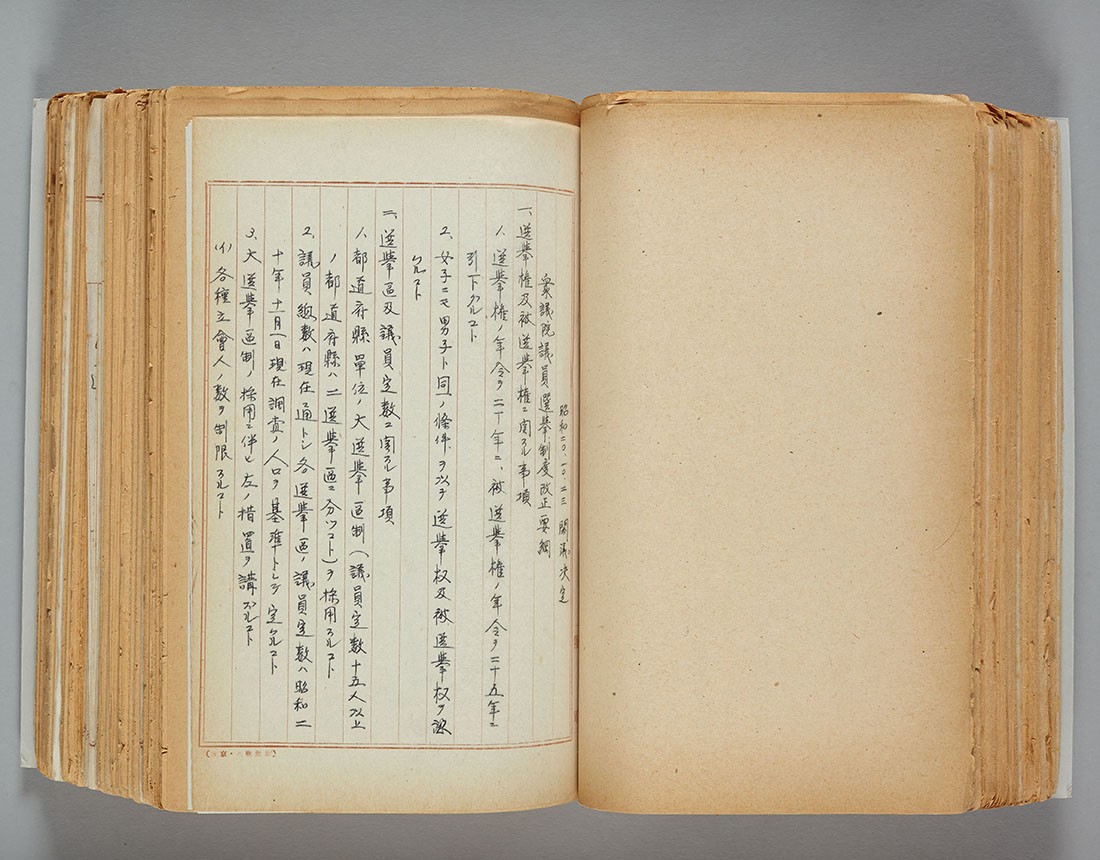 昭和二〇、一〇、二三 閣議決定
衆議院議員選擧制度改正要綱
一、選擧権及被選擧権ニ関スル事項
1、選擧権ノ年令ヲ二十年ニ、被選擧権ノ年令ヲ二十五年ニ
引下グルコト
2、女子ニモ男子ト同一ノ條件ヲ以テ選擧权及被選擧权ヲ認
ムルコト
二、選擧區及議員定数ニ関スル事項
1、都道府縣單位ノ大選擧區制(議員定数十五人以上
ノ都道府縣ハ二選擧區ニ分ツコト)ヲ採用スルコト
2、議員總数ハ現在通トシ各選擧區ノ議員定数ハ昭和二
十年十一月一日現在調査ノ人口ヲ基準トシテ定ムルコト
3、大選擧區制ノ採用ニ伴ヒ左ノ措置ヲ講ズルコト
(イ)各種立會人ノ数ヲ制限スルコト